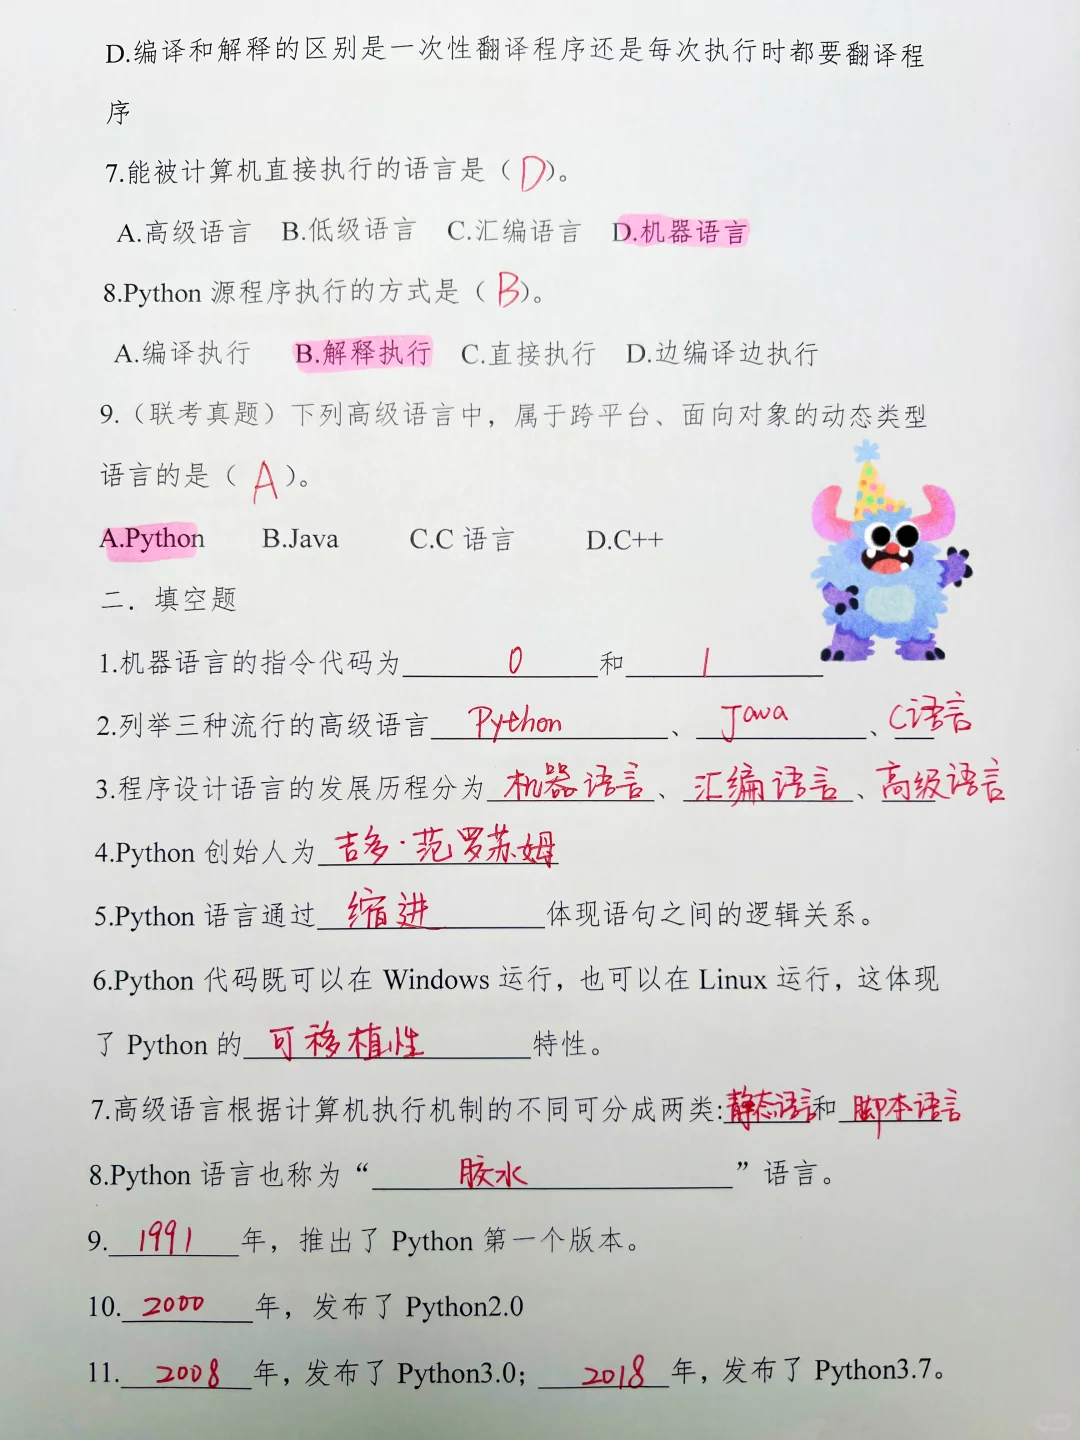 D.编译和解释的区别是一次性翻译程序还是每次执行时都要翻译程
序
7.能被计算机直接执行的语言是（ D ）。
A.高级语言 B.低级语言 C.汇编语言 D.机器语言
8.Python 源程序执行的方式是（ B ）。
A.编译执行 B.解释执行 C.直接执行 D.边编译边执行
9.（联考真题）下列高级语言中，属于跨平台、面向对象的动态类型
语言的是（ A ）。
A.Python B.Java C.C 语言 D.C++
二．填空题
1.机器语言的指令代码为 0 和 1
2.列举三种流行的高级语言 Python 、 Java 、 C语言
3.程序设计语言的发展历程分为 机器语言 、 汇编语言 、 高级语言
4.Python 创始人为 吉多·范罗苏姆
5.Python 语言通过 缩进 体现语句之间的逻辑关系。
6.Python 代码既可以在 Windows 运行，也可以在 Linux 运行，这体现
了 Python 的 可移植性 特性。
7.高级语言根据计算机执行机制的不同可分成两类:静态语言和 脚本语言
8.Python 语言也称为“ 胶水 ”语言。
9. 1991 年，推出了 Python 第一个版本。
10. 2000 年，发布了 Python2.0
11. 2008 年，发布了 Python3.0； 2018 年，发布了 Python3.7。